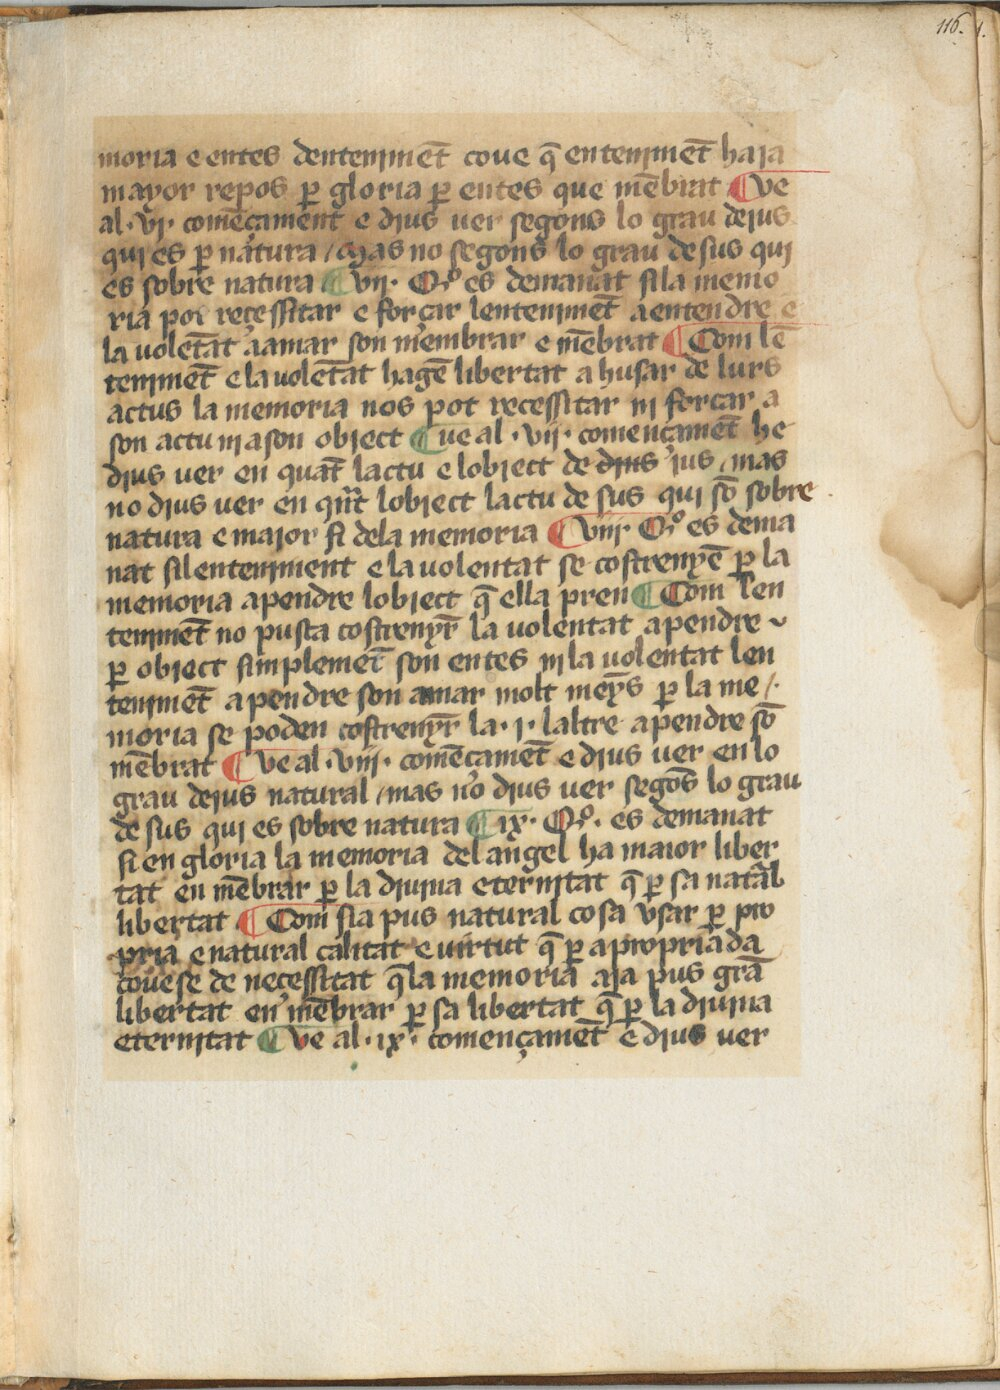 116. 1.
moria e entes dentenimēt coue q̄ entenimēt haia
mayor repos ꝑ gloria ꝑ entes que mēbrat ¶ Ve
al ·vi· comēçament e dius uer segons lo grau deius
qui es ꝑ natura / mas no segons lo grau de sus qui
es sobre natura ¶ vii· Qº es demanat si la memo
ria pot reçessitar e forçar lentenimēt a entendre e
la uolētat a amar son membrar e mēbrat ¶ Com lē
tenimēt e la uolētat hagē libertat a husar de lurs
actus la memoria nos pot reçessitar ni forcar a
son actu ni a son obiect ¶ ue al ·vii· començamēt he
dius uer en quāt lactu e lobiect de dius ius / mas
no dius uer en qn̄t lobiect lactu de sus qui sō sobre
natura e maior fi dela memoria ¶ viii· Qº es dema
nat si lenteniment e la uolentat se costrenyē ꝑ la
memoria a pendre lobiect q̄ ella pren ¶ Com len
tenimēt no pusca costrenyr̄ la uolentat a pendre
ꝑ obiect simplemēt son entes ni la uolentat len
tenimēt a pendre son amar molt meȳs ꝑ la me /·
moria se poden costrenyr̄ la ·i· laltre a pendre sō
mēbrat ¶ Ve al ·viii· comēcamēt e dius uer en lo
grau deius natural / mas no dius uer segōs lo grau
de sus qui es sobre natura ¶ ix· Qº· es demanat
si en gloria la memoria del angel ha maior liber
tat en mēbrar ꝑ la diuina eternitat q̄ ꝑ sa natāl
libertat ¶ Com sia pus natural cosa vsar ꝑ pro
pria e natural calitat e uirtut q̄ ꝑ apropriada
couese de necessitat q̄ la memoria aia pus grā
libertat en mēbrar ꝑ sa libertat q̄ ꝑ la diuina
eternitat ¶ ve al ·ix· començamēt e dius uer